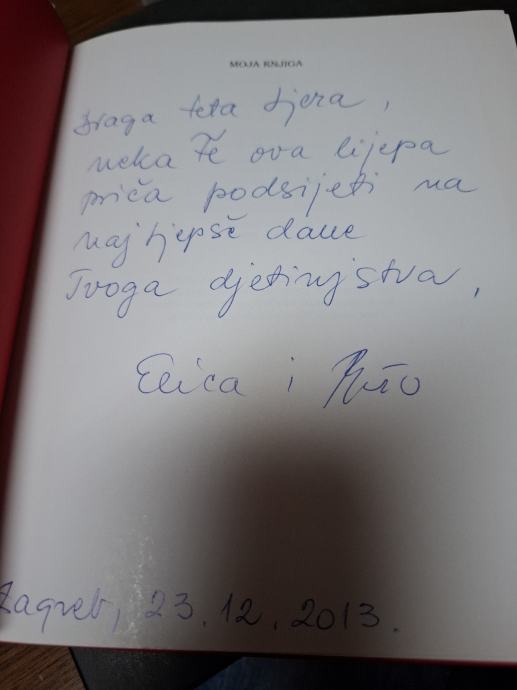 MOJA KNJIGA
Draga teta Ljera,
neka Te ova lijepa
priča podsijeti na
najljepše dane
Tvoga djetinjstva,
Elica i
Zagreb, 23.12.2013.